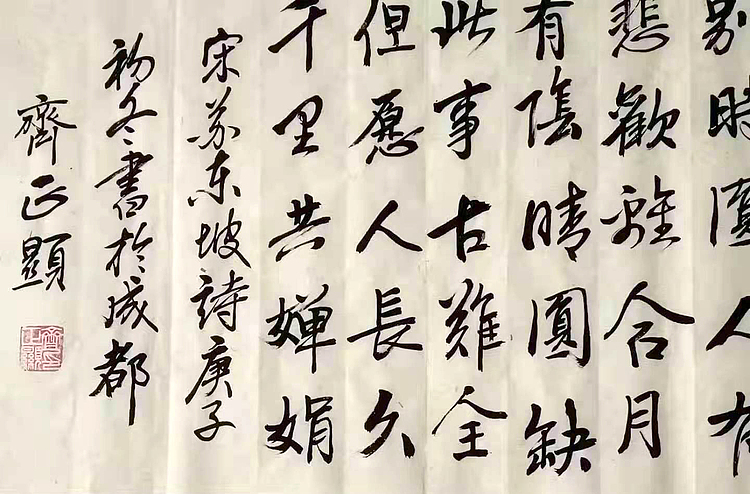 别時圓人有
悲歡離合月
有陰晴圓缺
此事古難全
但愿人長久
千里共嬋娟
宋苏東坡詩庚子
初冬書於成都
齊正顯